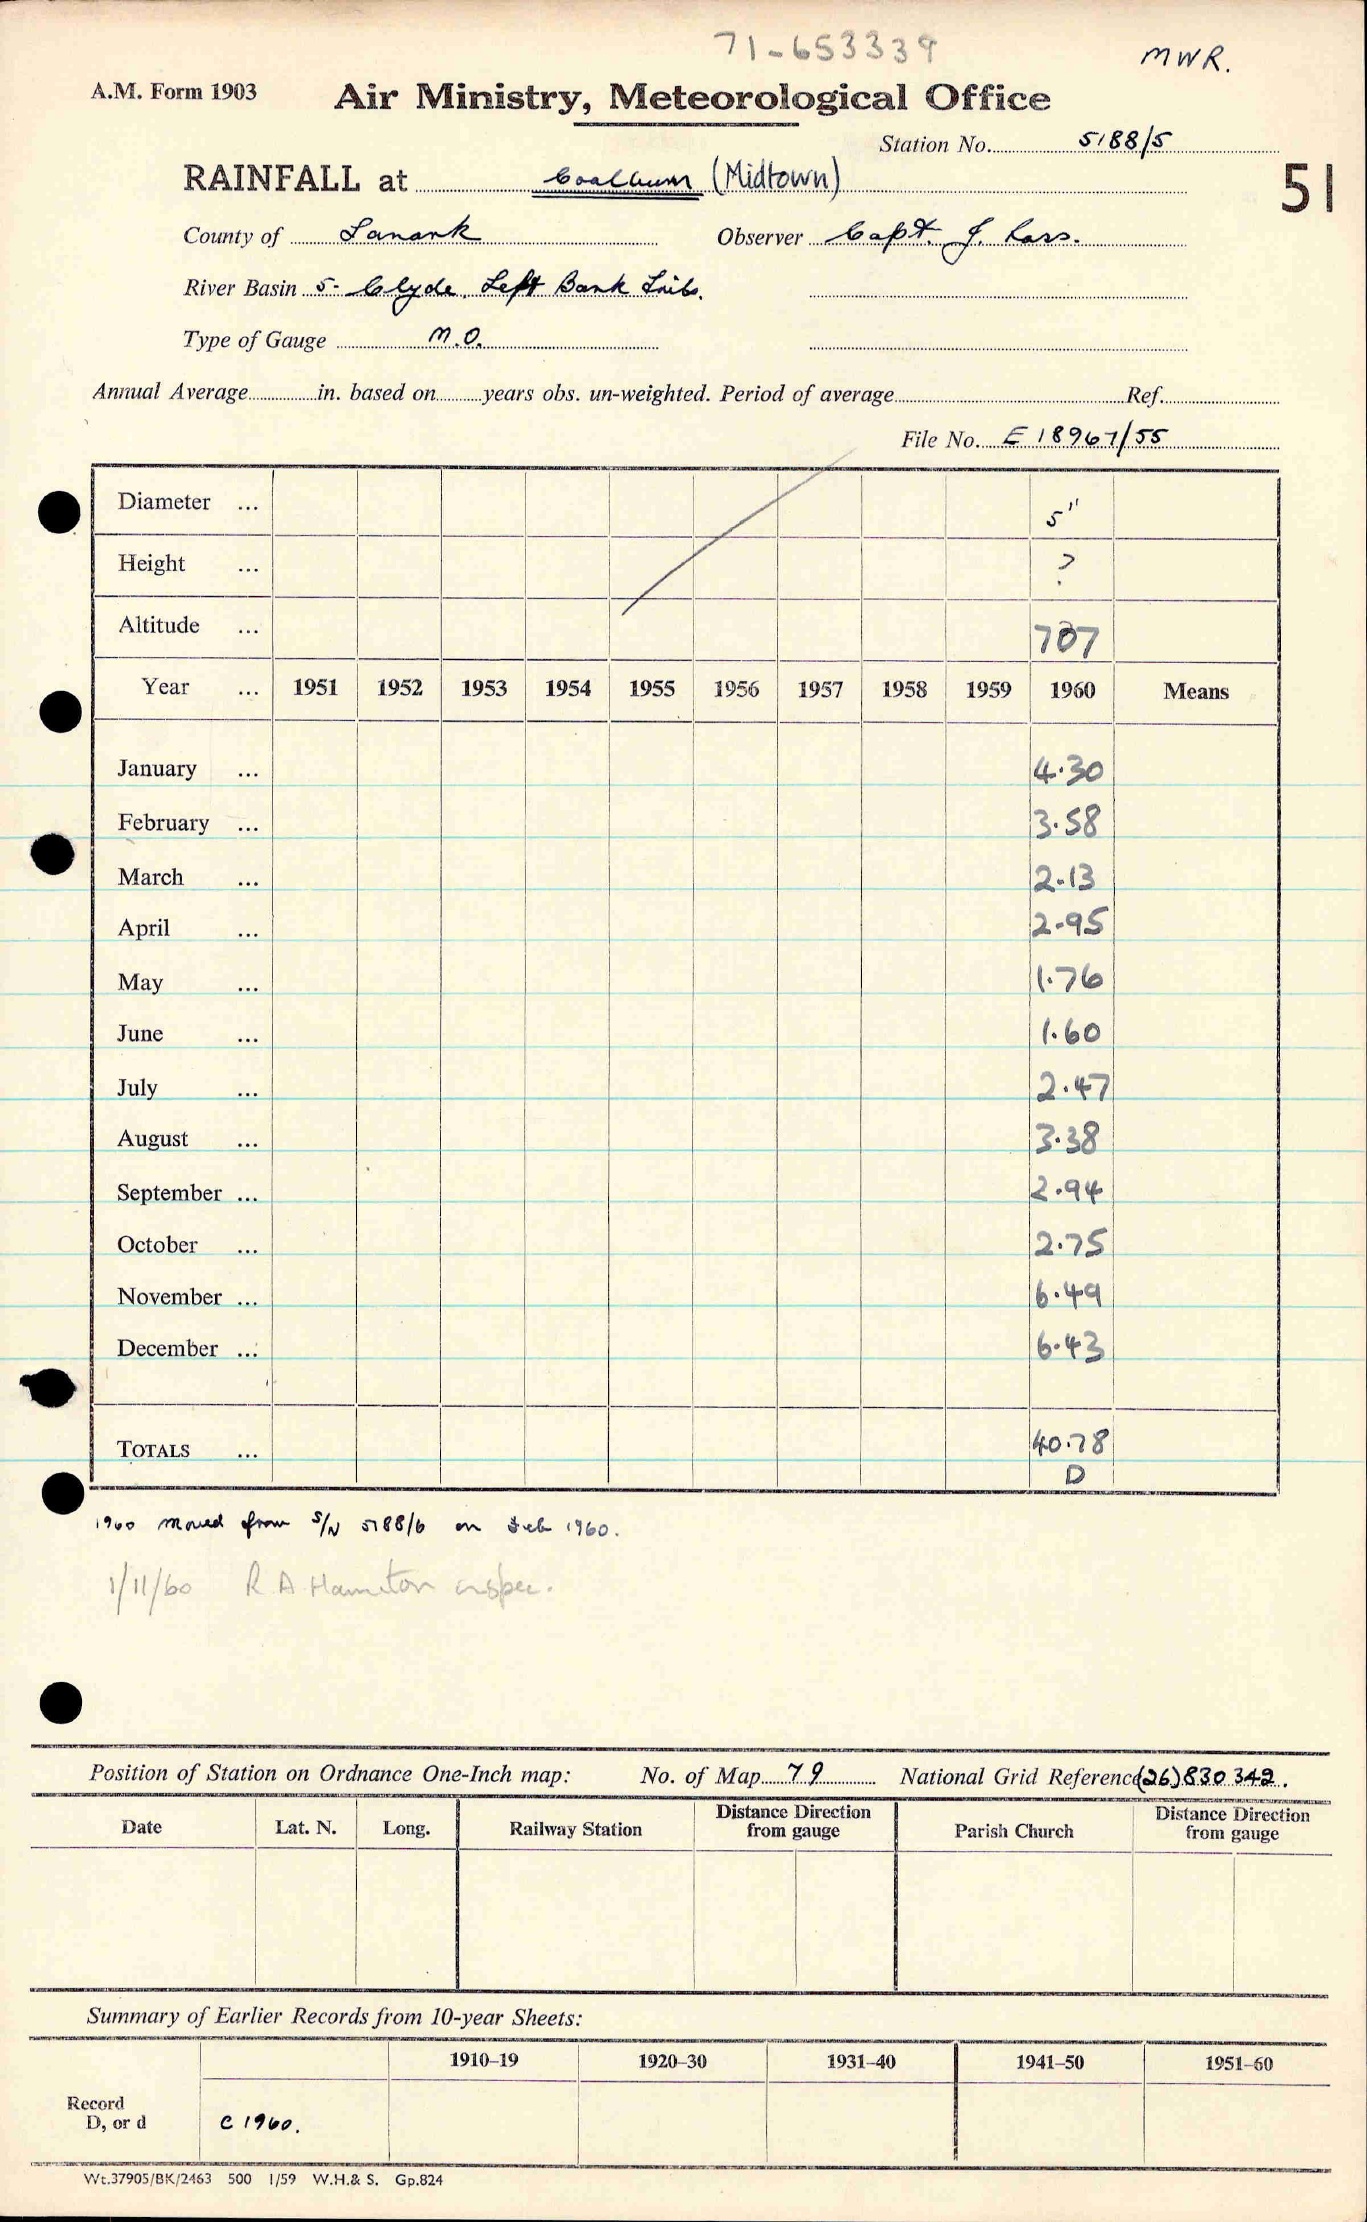 71-653339
MWR.
A.M. Form 1903
Air Ministry, Meteorological Office
Station No. 5188/5
RAINFALL at Coalburn (Midtown)
51
County of Lanark Observer Capt. J. Ross.
River Basin 5- Clyde, Left Bank Tribs.
Type of Gauge M.O.
Annual Average in. based on years obs. un-weighted. Period of average Ref.
File No. E 18967/55
Diameter ... 5"
Height ... ?
Altitude ... 707
Year ... 1951 1952 1953 1954 1955 1956 1957 1958 1959 1960 Means
January ... 4.30
February ... 3.58
March ... 2.13
April ... 2.95
May ... 1.76
June ... 1.60
July ... 2.47
August ... 3.38
September ... 2.94
October ... 2.75
November ... 6.49
December ... 6.43
TOTALS ... 40.78
D
1960 moved from S/N 5188/6 on Feb 1960.
1/11/60 R A Hamilton inspec.
Position of Station on Ordnance One-Inch map: No. of Map 79 National Grid Reference (26) 830 342.
Date Lat. N. Long. Railway Station Distance Direction from gauge Parish Church Distance Direction from gauge
Summary of Earlier Records from 10-year Sheets:
1910–19 1920–30 1931–40 1941–50 1951–60
Record
D, or d C 1960.
Wt.37905/BK/2463 500 1/59 W.H.& S. Gp.824